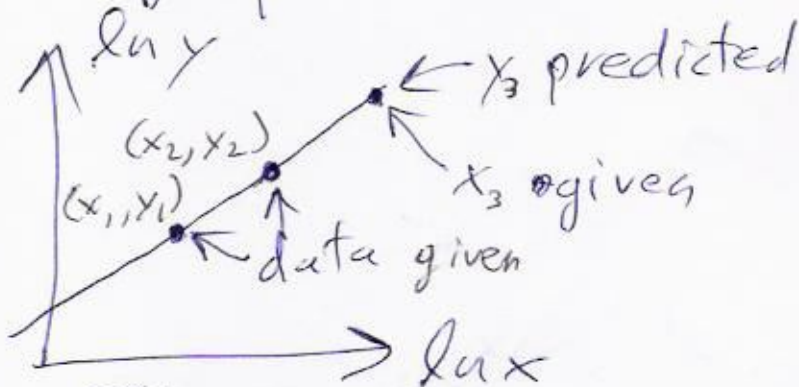 ln y
y₃ predicted
(x₂, y₂)
x₃ given
(x₁, y₁)
data given
ln x